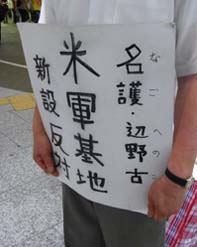 名護・辺野古
なご へのこ
米軍基地
新設反対